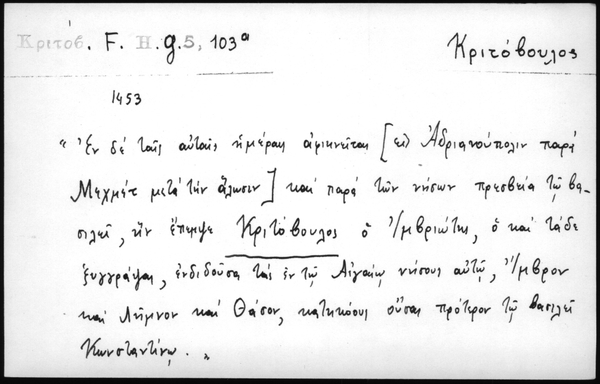 Κριτοβ. F. H. g. 5, 103α
Κριτόβουλος
1453
"Ἐν δέ ταῖς αὐταῖς ἡμέραις ἀφικνεῖται [εἰς Ἀδριανούπολιν παρά
Μεχμέτ μετά τήν ἅλωσιν] καί παρά τῶν νήσων πρεσβεία τῷ βα-
σιλεῖ, ἥν ἔπεμψε Κριτόβουλος ὁ Ἰμβριώτης, ὁ καί τάδε
ξυγγράψας, ἐνδιδοῦσα τάς ἐν τῷ Αἰγαίῳ νήσους αὐτῷ, Ἴμβρον
καί Λῆμνον καί Θάσον, κατηκόους οὔσας πρότερον τῷ βασιλεῖ
Κωνσταντίνῳ."